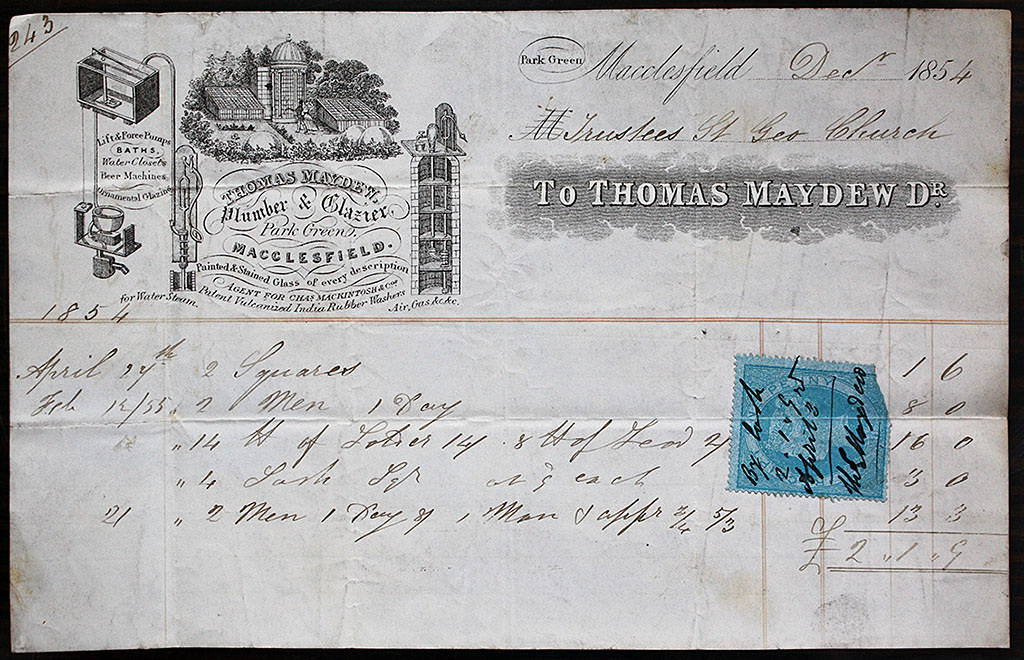 243
Lift & Force Pumps
BATHS,
Water Closets
Beer Machines
Ornamental Glazing
THOMAS MAYDEW,
Plumber & Glazier,
Park Green,
MACCLESFIELD.
Painted & Stained Glass of every description
AGENT FOR CHAS. MACKINTOSH & COS.
Patent Vulcanized India Rubber Washers
for Water Steam, Air, Gas &c &c.
Park Green Macclesfield Decr 1854
Trustees St Geo Church
TO THOMAS MAYDEW DR.
1854
April 27th 2 Squares 1 6
Feb 12/55 2 Men 1 Day 8 0
" 14 of 14 8 of Lead 2/ 16 0
" 4 Sash Sqr at 9 each 3 0
21 " 2 Men 1 Day & 1 Man & appr 3/4 5/3 13 3
£2 " 1 " 9
PENNY
By Cash
2 " 1 " 9
April 2
Maydew